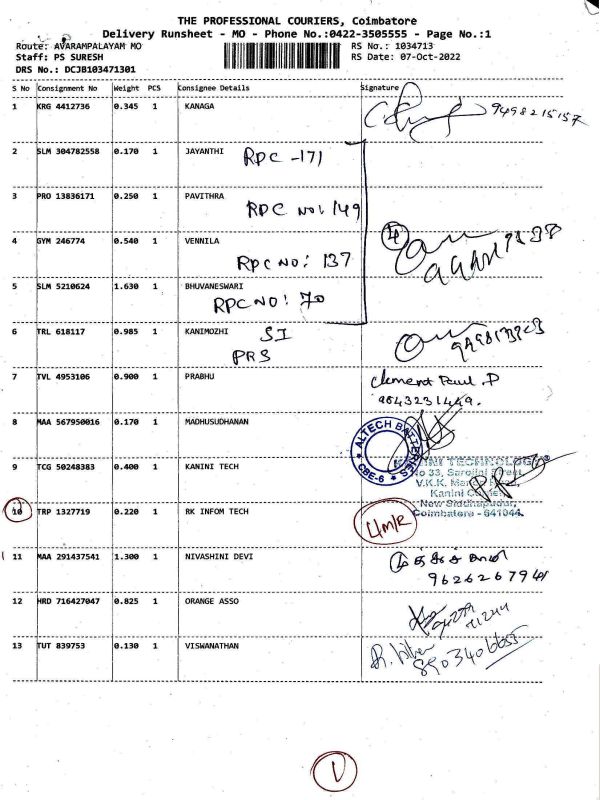 THE PROFESSIONAL COURIERS, Coimbatore
Delivery Runsheet - MO - Phone No.:0422-3505555 - Page No.:1
Route: AVARAMPALAYAM MO
RS No.: 1034713
Staff: PS SURESH
RS Date: 07-Oct-2022
DRS No.: DCJB103471301
S No Consignment No Weight PCS Consignee Details Signature
1 KRG 4412736 0.345 1 KANAGA 9498215157
2 SLM 304782558 0.170 1 JAYANTHI RPC -171
3 PRO 13836171 0.250 1 PAVITHRA
RPC NO: 149
4 GYM 246774 0.540 1 VENNILA 4
RPC NO: 137
5 SLM 5210624 1.630 1 BHUVANESWARI
RPC NO: 70
6 TRL 618117 0.985 1 KANIMOZHI SI
PRS
7 TVL 4953106 0.900 1 PRABHU Clement Paul .P
9843231449.
8 MAA 567950016 0.170 1 MADHUSUDHANAN
ALTECH BATTERIES
CBE-6
9 TCG 50248383 0.400 1 KANINI TECH KANINI TECHNOLOGY
No 33, Sarojini Street,
V.K.K.
Kanini
New Siddhapudur,
Coimbatore - 641044.
10 TRP 1327719 0.220 1 RK INFOM TECH
11 MAA 291437541 1.300 1 NIVASHINI DEVI
9626267941
12 HRD 716427047 0.825 1 ORANGE ASSO
13 TUT 839753 0.130 1 VISWANATHAN
8903406655
1